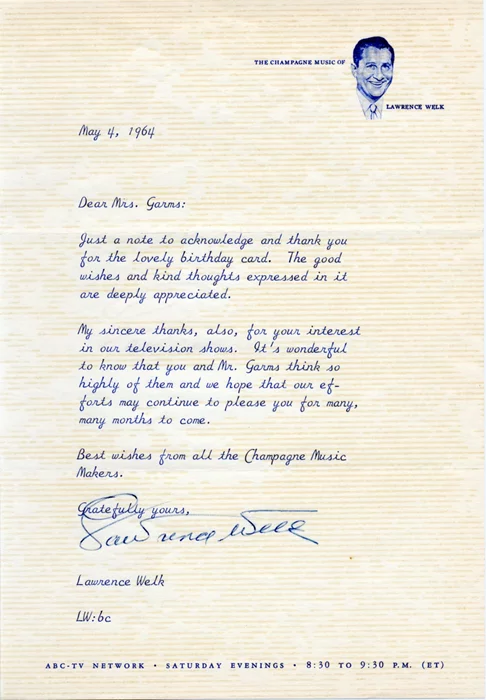 THE CHAMPAGNE MUSIC OF
LAWRENCE WELK
May 4, 1964
Dear Mrs. Garms:
Just a note to acknowledge and thank you
for the lovely birthday card. The good
wishes and kind thoughts expressed in it
are deeply appreciated.
My sincere thanks, also, for your interest
in our television shows. It's wonderful
to know that you and Mr. Garms think so
highly of them and we hope that our ef-
forts may continue to please you for many,
many months to come.
Best wishes from all the Champagne Music
Makers.
Gratefully yours,
Lawrence Welk
Lawrence Welk
LW:bc
ABC-TV NETWORK • SATURDAY EVENINGS • 8:30 TO 9:30 P.M. (ET)